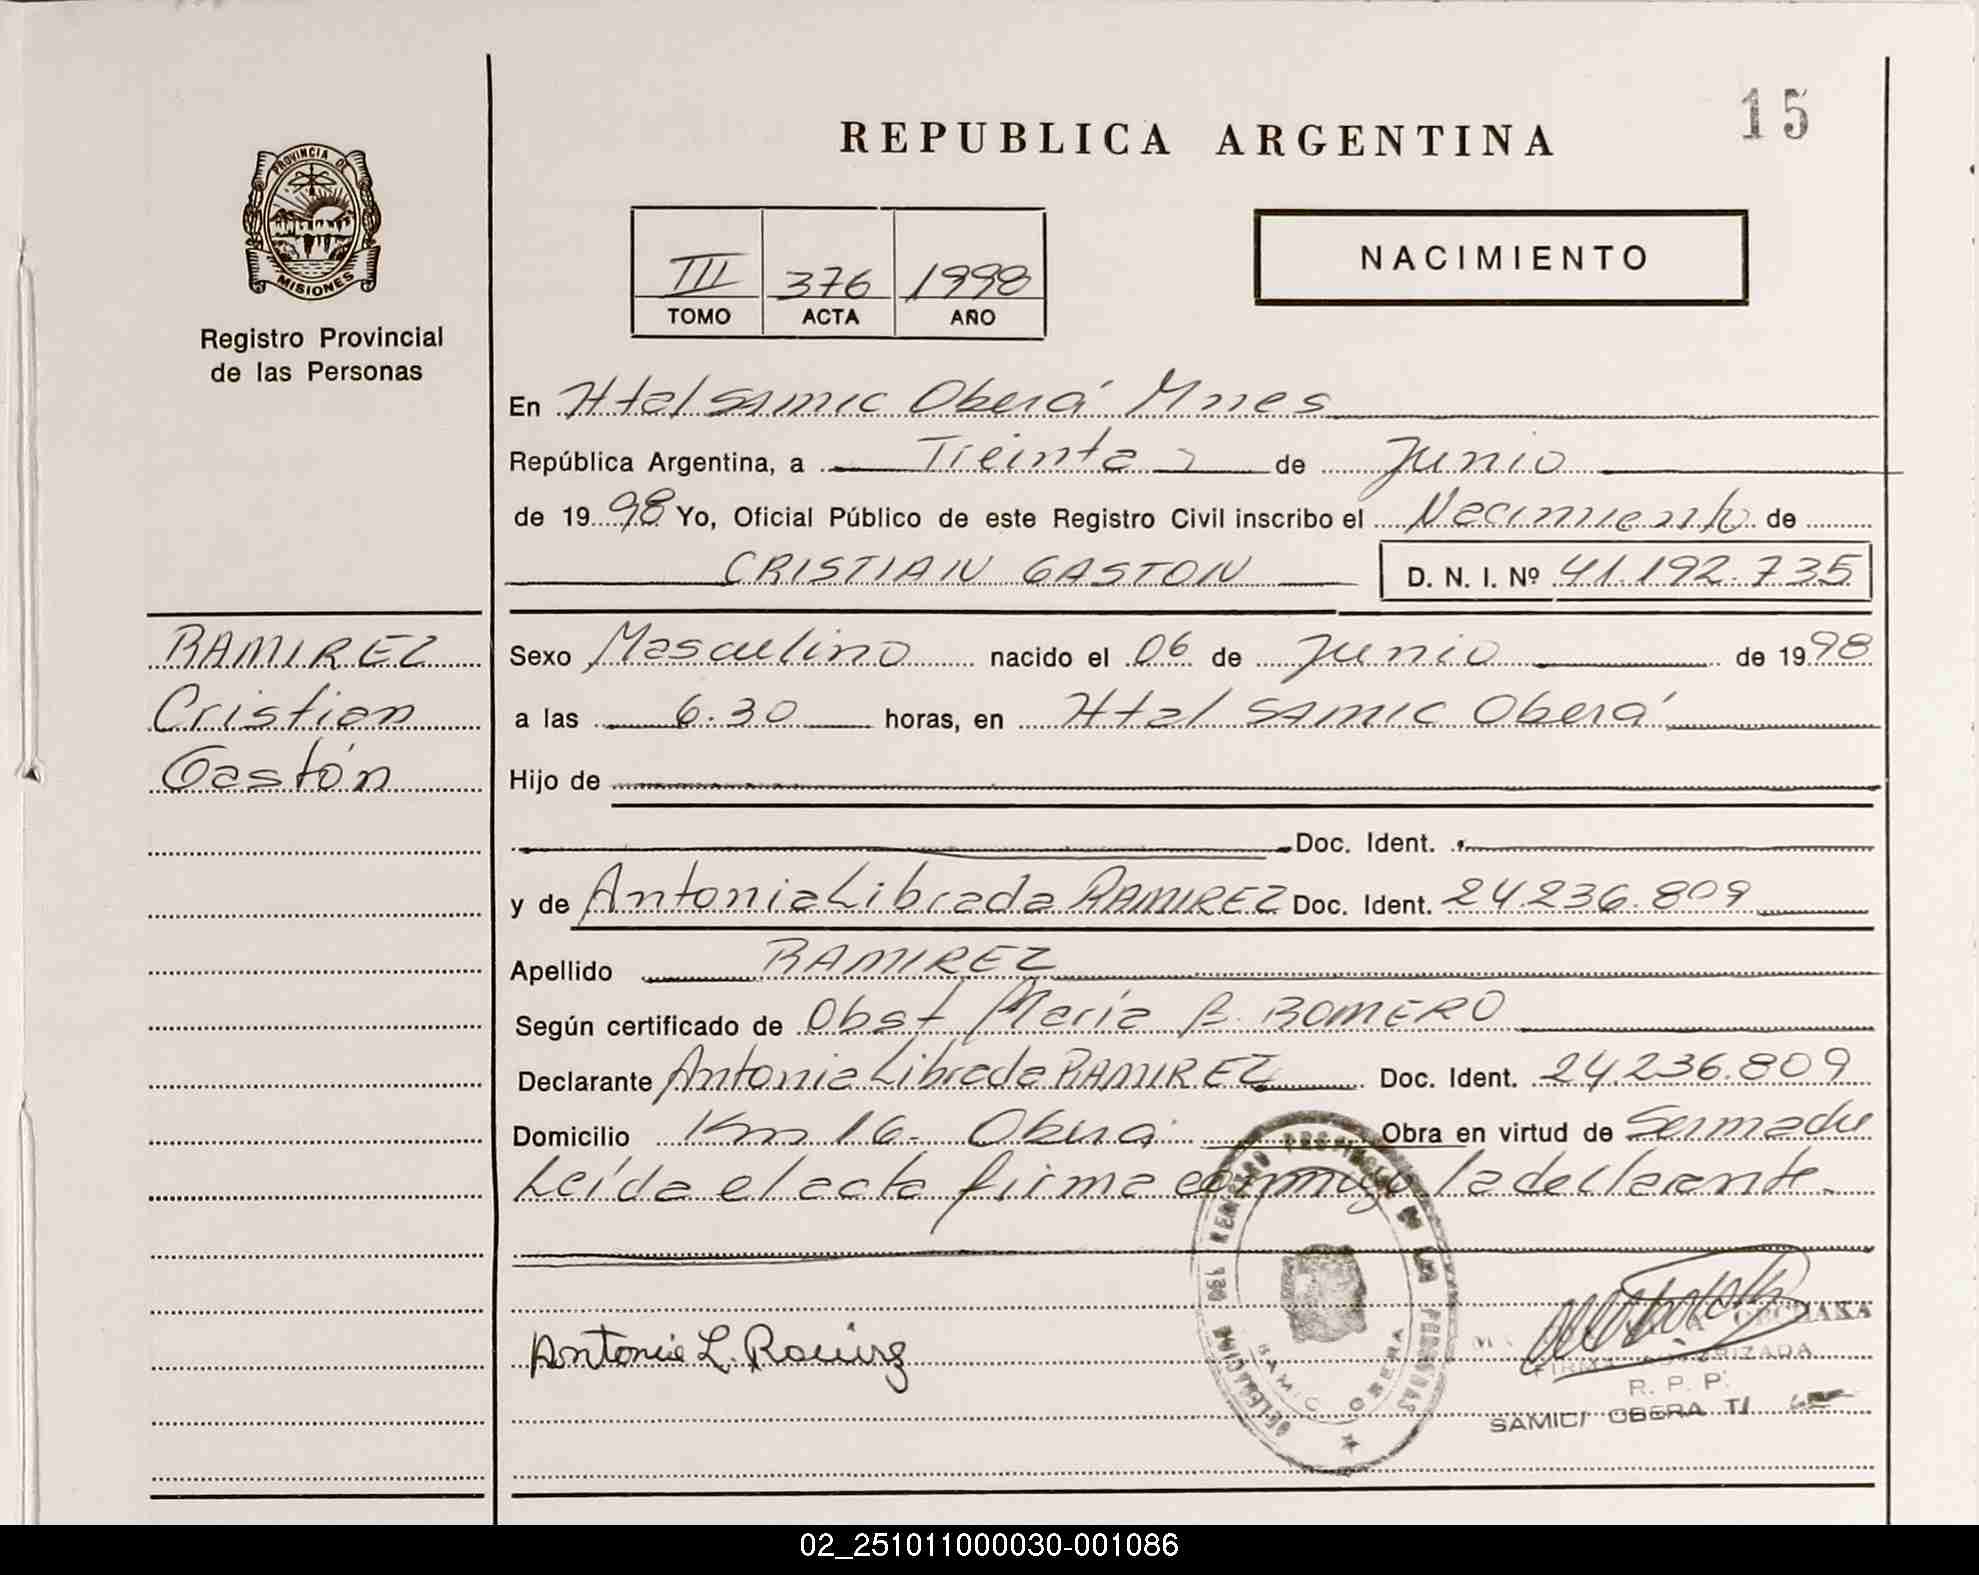 15
REPUBLICA ARGENTINA
PROVINCIA DE
MISIONES
Registro Provincial
de las Personas
III 376 1998
TOMO ACTA AÑO
NACIMIENTO
En Htal SAMIC Oberá Mnes
República Argentina, a Treinta de Junio
de 1998 Yo, Oficial Público de este Registro Civil inscribo el Nacimiento de
CRISTIAN GASTON D. N. I. Nº 41.192.735
RAMIREZ
Cristian
Gastón
Sexo Masculino nacido el 06 de Junio de 1998
a las 6.30 horas, en Htal SAMIC Oberá
Hijo de
Doc. Ident.
y de Antonia Librada RAMIREZ Doc. Ident. 24.236.809
Apellido RAMIREZ
Según certificado de Obst María B. ROMERO
Declarante Antonia Librada RAMIREZ Doc. Ident. 24.236.809
Domicilio Km 16. Oberá Obra en virtud de Ser madre
Leída el acta firma conmigo la declarante.
DELEGACION DEL REGISTRO PROVINCIAL DE LAS PERSONAS
SAMIC OBERA
Antonia L. Ramirez
FIRMA AUTORIZADA
R. P. P.
SAMIC/ OBERA T/
02_251011000030-001086